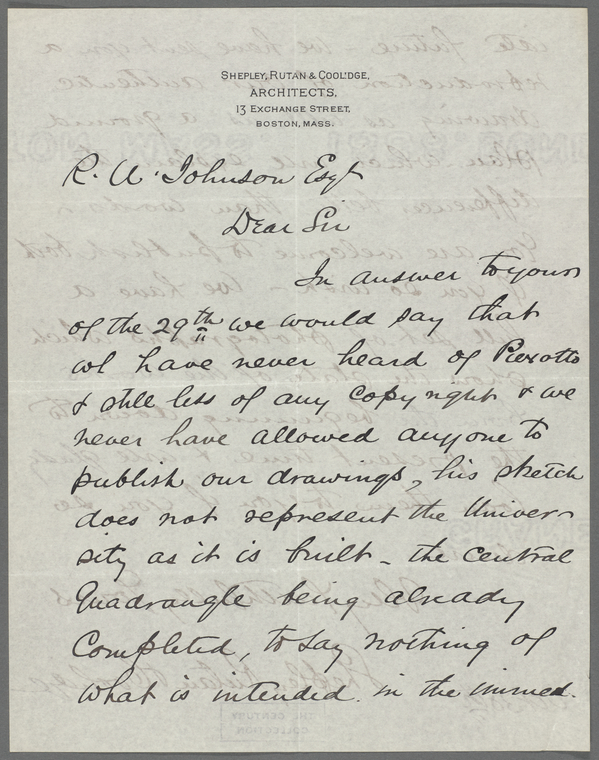 SHEPLEY, RUTAN & COOLIDGE,
ARCHITECTS,
13 EXCHANGE STREET,
BOSTON, MASS.
R. U. Johnson Esqr
Dear Sir
In answer to yours
of the 29th we would say that
we have never heard of Pierotto
& still less of any copyright & we
never have allowed anyone to
publish our drawings, his sketch
does not represent the Univer-
sity as it is built - the central
Quadrangle being already
Completed, to say nothing of
what is intended in the immed-
THE CENTURY
COLLECTION